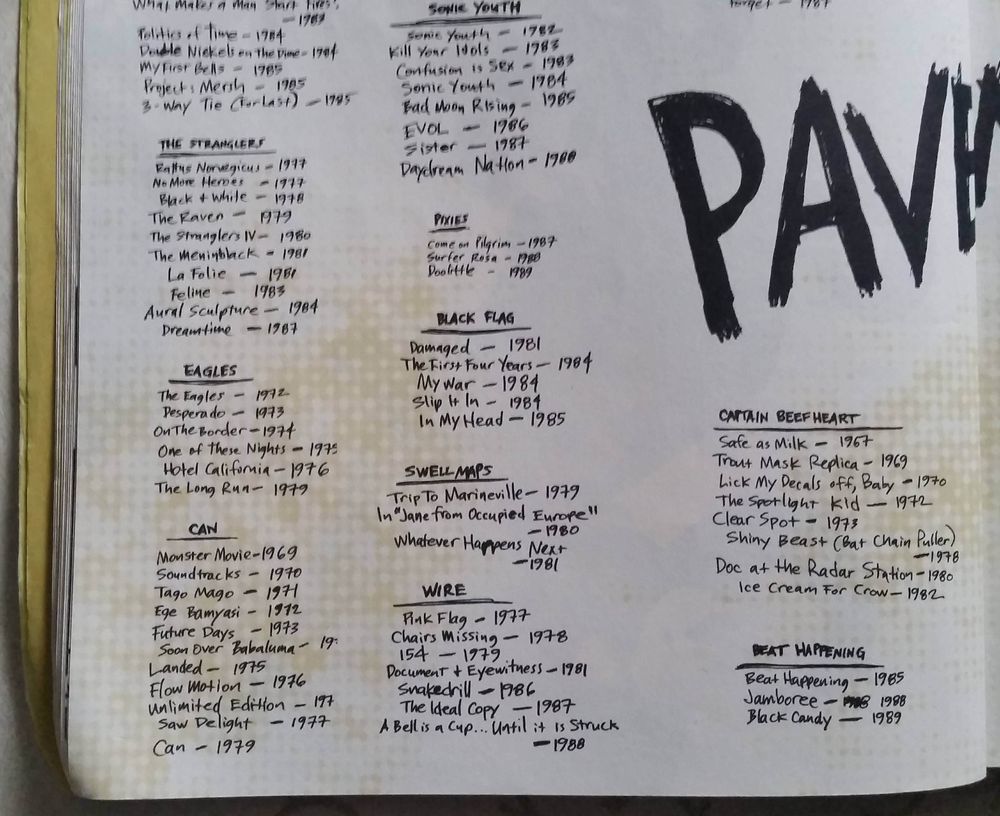 What Makes a Man Start Fires?
— 1983
Politics of Time — 1984
Double Nickels on The Dime — 1984
My First Bells — 1985
Project: Mersh — 1985
3-Way Tie (For Last) — 1985
THE STRANGLERS
Rattus Norvegicus — 1977
No More Heroes — 1977
Black + White — 1978
The Raven — 1979
The Stranglers IV — 1980
The Meninblack — 1981
La Folie — 1981
Feline — 1983
Aural Sculpture — 1984
Dreamtime — 1987
EAGLES
The Eagles — 1972
Desperado — 1973
On The Border — 1974
One of These Nights — 1975
Hotel California — 1976
The Long Run — 1979
CAN
Monster Movie — 1969
Soundtracks — 1970
Tago Mago — 1971
Ege Bamyasi — 1972
Future Days — 1973
Soon Over Babaluma — 19
Landed — 1975
Flow Motion — 1976
Unlimited Edition — 197
Saw Delight — 1977
Can — 1979
SONIC YOUTH
Sonic Youth — 1982
Kill Your Idols — 1983
Confusion is Sex — 1983
Sonic Youth — 1984
Bad Moon Rising — 1985
EVOL — 1986
Sister — 1987
Daydream Nation — 1988
PIXIES
Come on Pilgrim — 1987
Surfer Rosa — 1988
Doolittle — 1989
BLACK FLAG
Damaged — 1981
The First Four Years — 1984
My War — 1984
Slip It In — 1984
In My Head — 1985
SWELL MAPS
Trip To Marineville — 1979
In "Jane from Occupied Europe"
— 1980
Whatever Happens Next
— 1981
WIRE
Pink Flag — 1977
Chairs Missing — 1978
154 — 1979
Document + Eyewitness — 1981
Snakedrill — 1986
The Ideal Copy — 1987
A Bell is a Cup... Until it is Struck
— 1988
Forget — 1987
PAV
CAPTAIN BEEFHEART
Safe as Milk — 1967
Trout Mask Replica — 1969
Lick My Decals off, Baby — 1970
The Spotlight Kid — 1972
Clear Spot — 1973
Shiny Beast (Bat Chain Puller)
— 1978
Doc at the Radar Station — 1980
Ice Cream For Crow — 1982
BEAT HAPPENING
Beat Happening — 1985
Jamboree — 1988
Black Candy — 1989